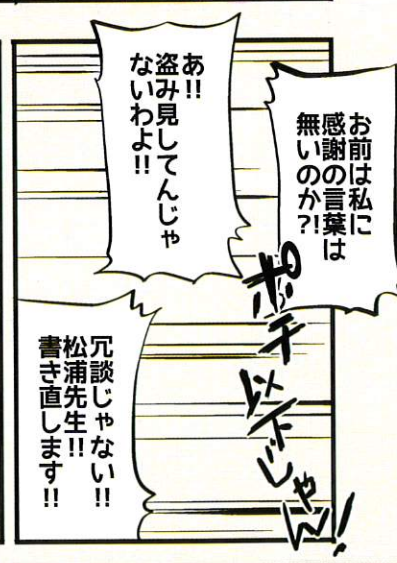 お前は私に
感謝の言葉は
無いのか?!
あ!!
盗み見してんじゃ
ないわよ!!
ポチ以下じゃん!
冗談じゃない!!
松浦先生!!
書き直します!!